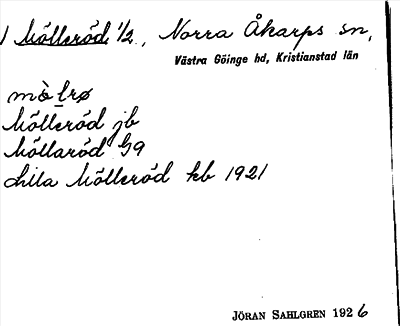 Mölleröd 1/2, Norra Åkarps sn,
Västra Göinge hd, Kristianstad län
Mölleröd jb
Möllaröd
Lilla Mölleröd kb 1921
JÖRAN SAHLGREN 1926